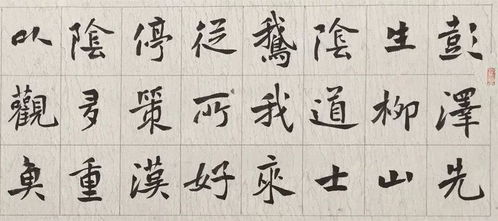 彭澤先
生柳山
陰道士
鵞我來
從所好
停策漢
陰多重
以觀魚